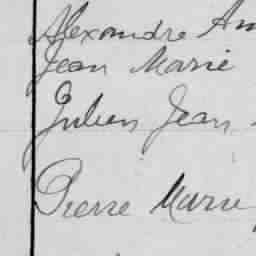 Alexandre
Jean Marie
Julien Jean
Pierre Marie